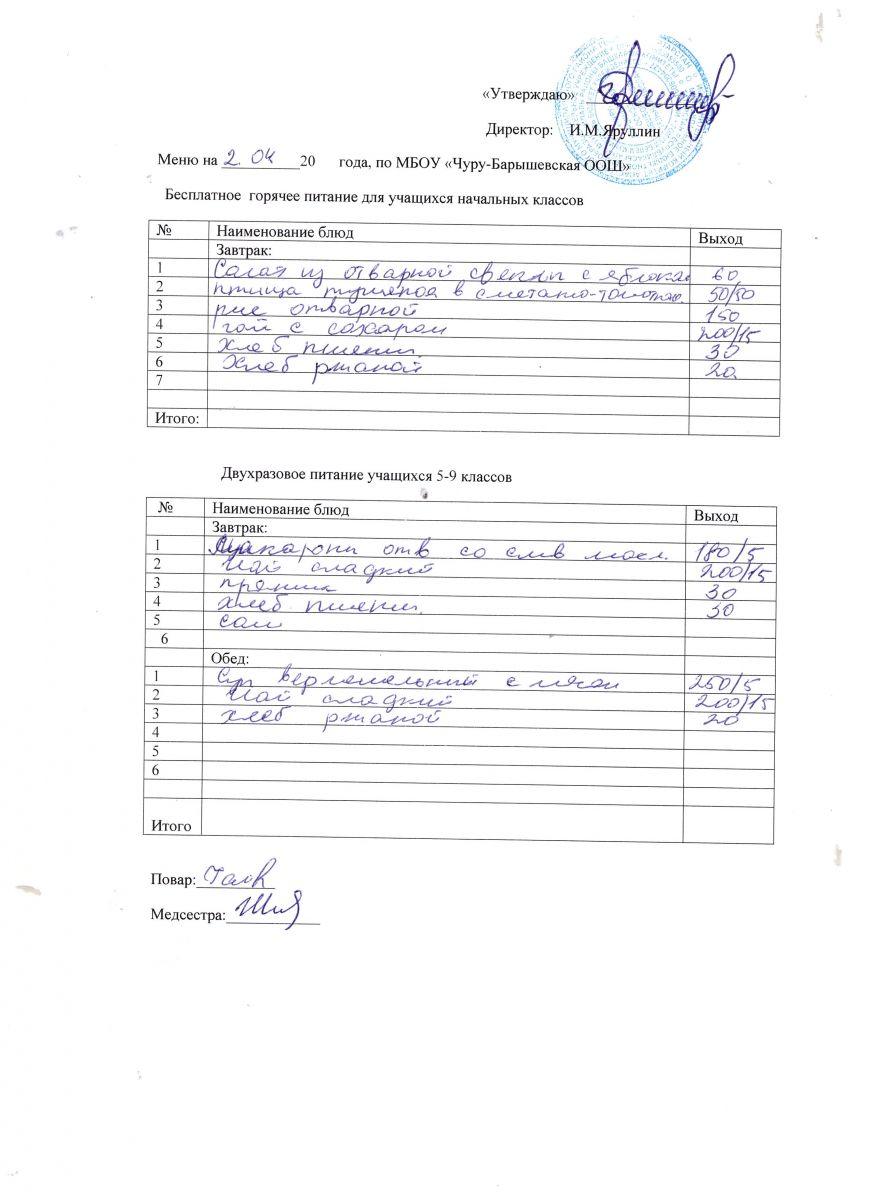 «Утверждаю»
Директор: И.М.Яруллин
Меню на 2. 04 20 года, по МБОУ «Чуру-Барышевская ООШ»
Бесплатное горячее питание для учащихся начальных классов
№ Наименование блюд Выход
Завтрак:
1 Салат из отварной свеклы с яблокам 60
2 птица тушеная в сметано-томатно. 50/50
3 рис отварной 150
4 чай с сахаром 200/15
5 Хлеб пшенич. 30
6 Хлеб ржаной 20
7
Итого:
Двухразовое питание учащихся 5-9 классов
№ Наименование блюд Выход
Завтрак:
1 Макароны отв со слив масл. 180/5
2 Чай сладкий 200/15
3 пряник 30
4 хлеб пшенич. 30
5
6
Обед:
1 Суп вермешельный с мясом 250/5
2 Чай сладкий 200/15
3 хлеб ржаной 20
4
5
6
Итого
Повар:
Медсестра: